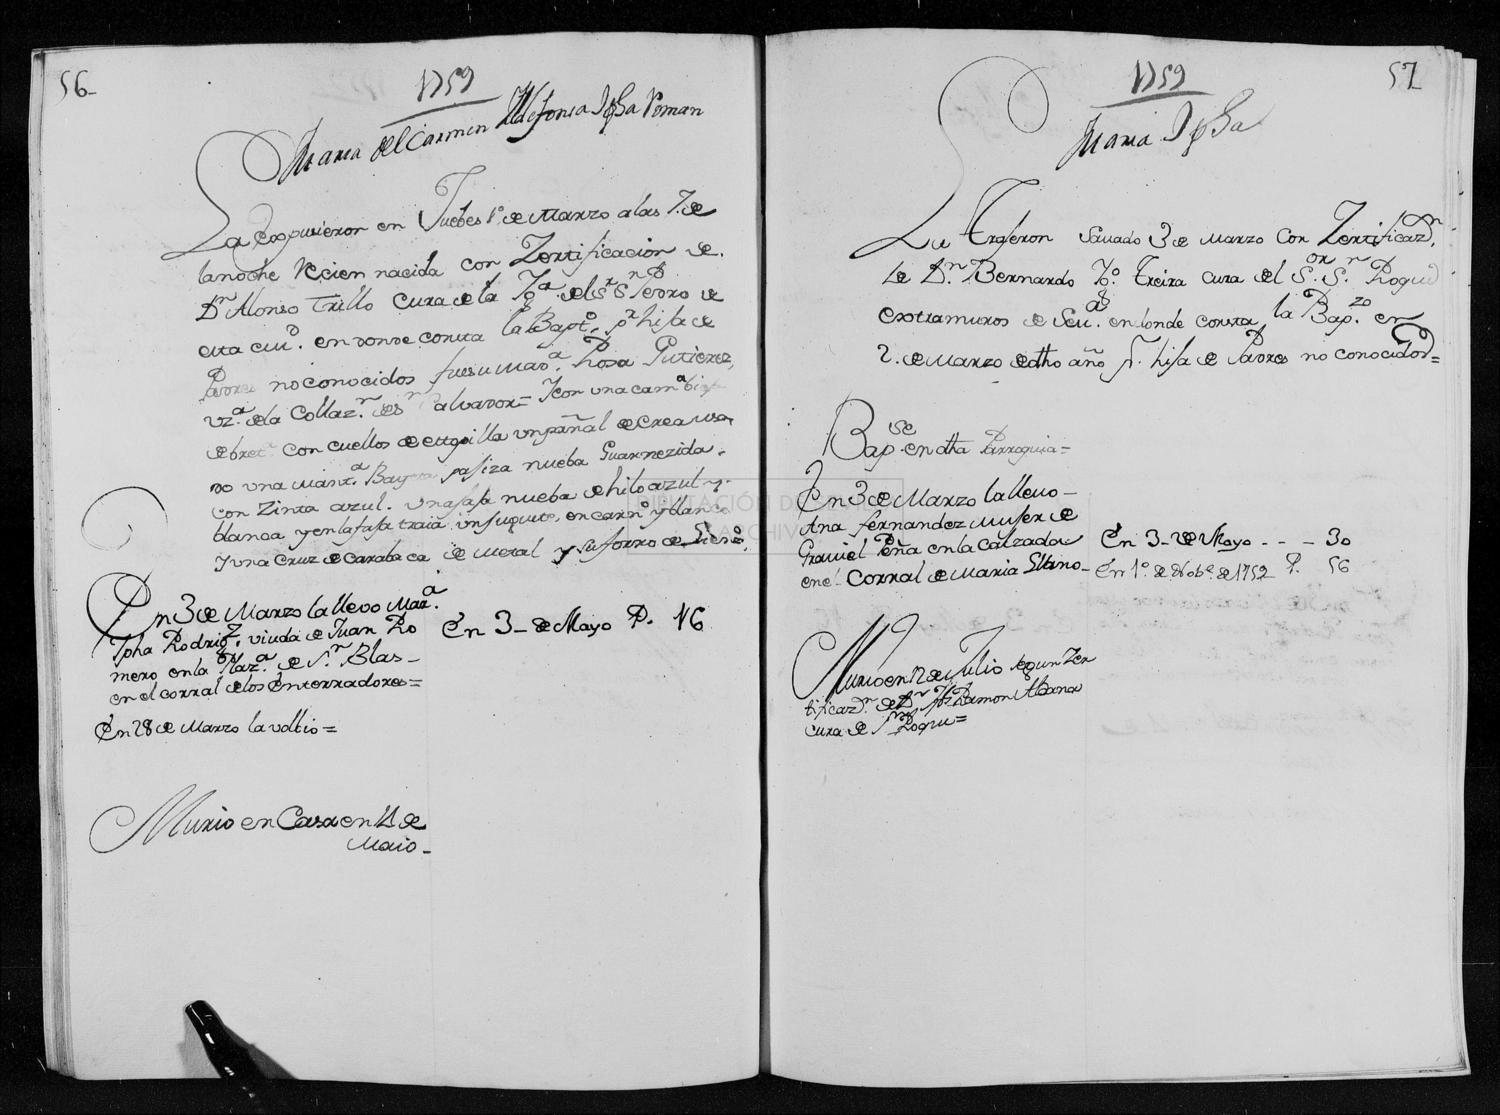 56
1759
Maria del Carmen Ildefonsa Jpha Roman
La Expusieron en Juebes 1º de Marzo a las 7. de
la noche Recien nacida con Zertificacion de
Dn Alonso Trillo Cura de la Ygª. del Sr Sn Pedro de
esta ciud. en donde consta la Baptº. pr hija de
Padres no conocidos fue su Madª. Rosa Gutierez,
vzª. de la Collazn. de Sn Salvador = Y con una camª
de bretª con cuellos de estopilla un pañal de crea usa
do una mantª Bayeta pajiza nueba Guarnezida
con Zinta azul. una faja nueba de hilo azul y
blanca y en la faja traia un juguete encarnº y blanco
Y una Cruz de Carabaca de metal y su forro de Lienzº
En 3 de Marzo la llevo Marª.
Jpha Rodrigz. viuda de Juan Ro
mero en la Plazª de Sn Blas
en el corral de los Enterradores=
En 3 de Mayo P. 46
En 28 de Marzo la volbio=
Murio en Casa en 11 de
Maio
57
1759
Maria Jpha
La Trageron Savado 3 de Marzo Con Zertificazn.
de Dn Bernardo Treira cura del Sor Sn Roque
extramuros de Seuª. en donde consta la Bapzo en
2. de Marzo de dho año pr. hija de Padres no conocidos=
Bapse en dha Parroquia=
En 3 de Marzo la llevo
Ana Fernandez muger de
Graviel Peña en la Calzada
en el Corral de Maria
En 3 de Mayo - - - 30
En 1º de Nobe. de 1752 P. 56
Murio en 12 de Julio segun Zer
tificazn. de Dn Ramon
cura de Sn Roque=
DIPUTACIÓN DE SEVILLA
ARCHIVO